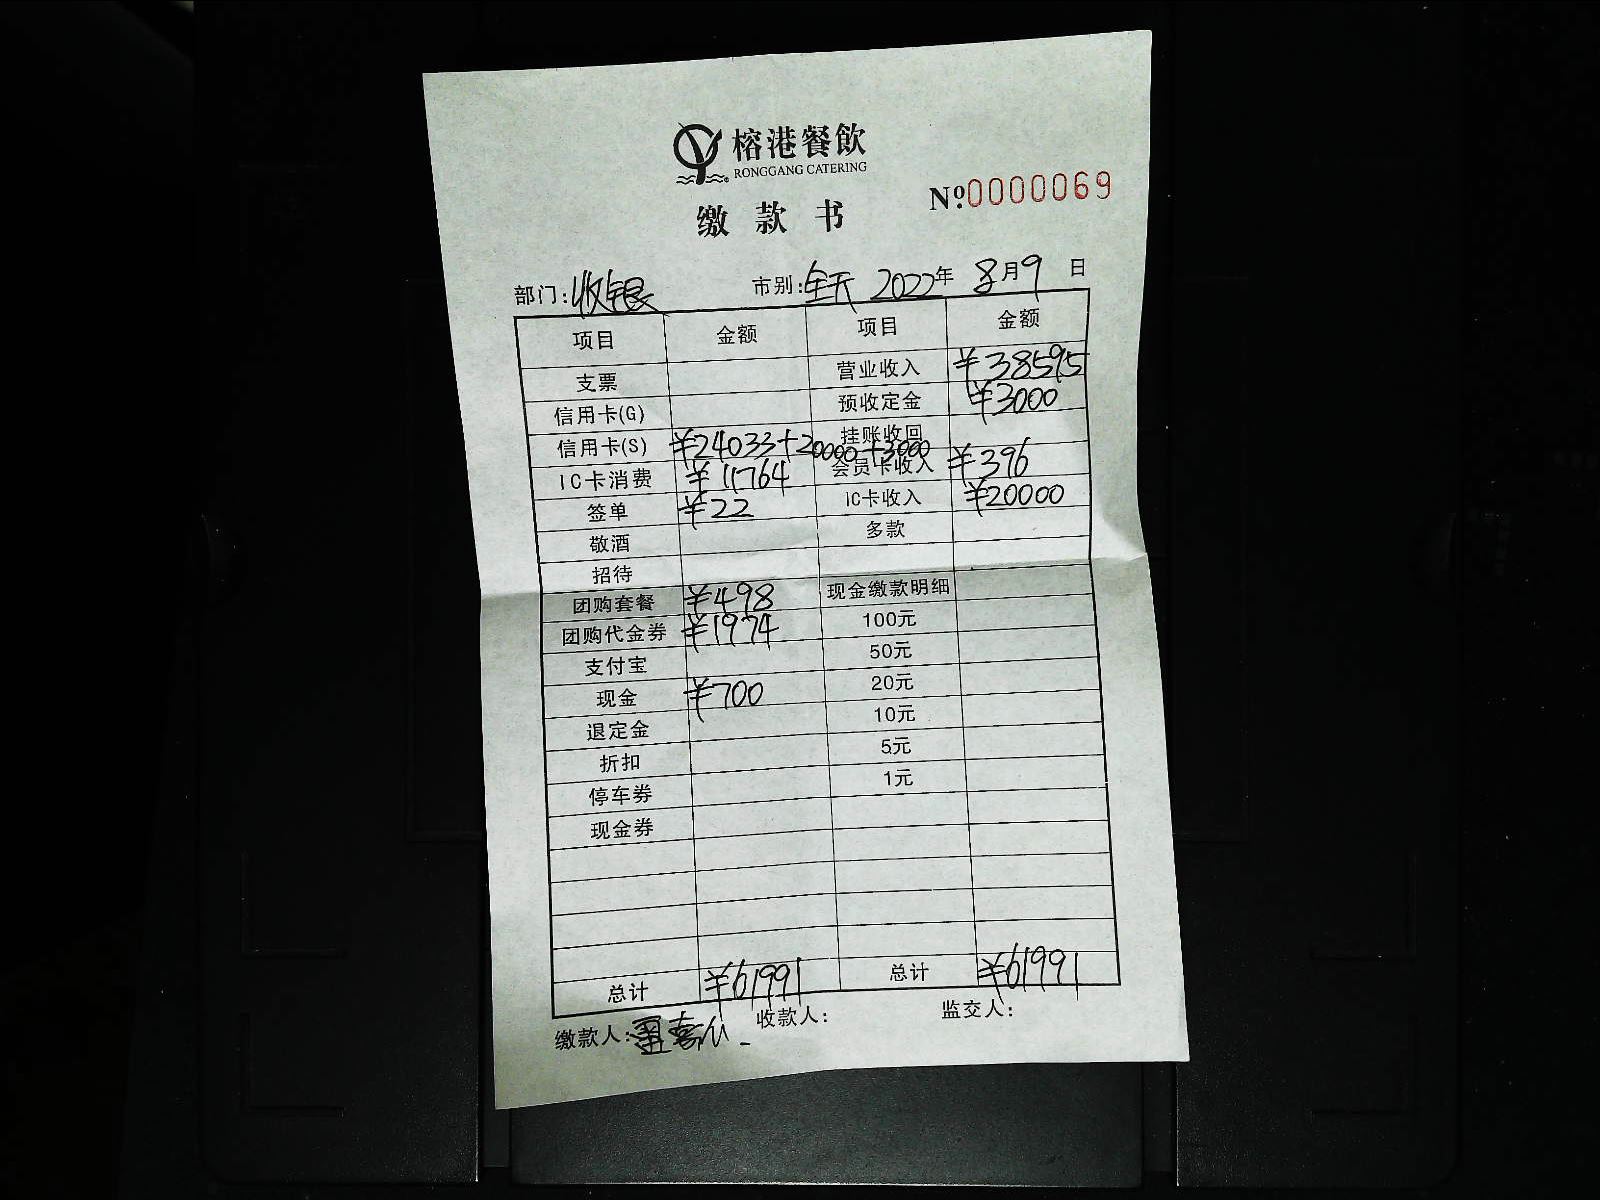 榕港餐飲
RONGGANG CATERING
缴款书
Nº.0000069
部门:收银 市别:全天 2022年 8月9日
项目 金额 项目 金额
支票 营业收入 ¥38595
信用卡(G) 预收定金 ¥3000
信用卡(S) ¥24033+20000+3000 挂账收回
IC卡消费 ¥11764 会员卡收入 ¥396
签单 ¥22 IC卡收入 ¥20000
敬酒 多款
招待
团购套餐 ¥498 现金缴款明细
团购代金券 ¥1974 100元
支付宝 50元
现金 ¥700 20元
退定金 10元
折扣 5元
停车券 1元
现金券
总计 ¥61991 总计 ¥61991
缴款人: 收款人: 监交人: